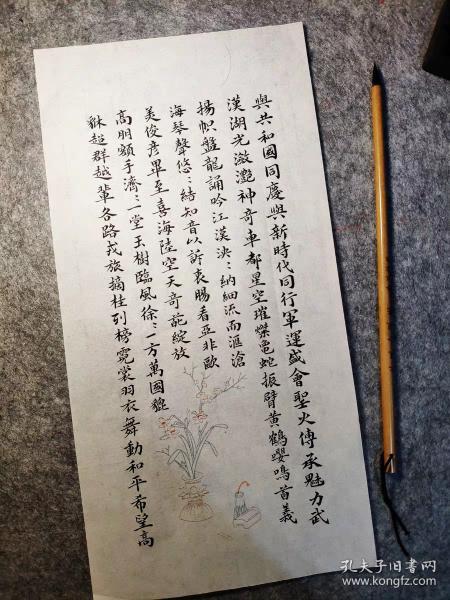 與共和國同慶與新時代同行軍運盛會聖火傳承魅力武
漢湖光瀲灩神奇車都星空璀燦龜蛇振臂黄鶴嚶鳴首義
揚幟盤龍誦吟江漢泱:納細流而滙滄
海琴聲悠:結知音以訴衷腸看亞非歐
美俊彦畢至喜海陸空天奇葩綻放
高朋額手濟:一堂玉樹臨風徐:一方萬國貔
貅超群越輩各路戎旅摘桂列榜霓裳羽衣舞動和平希望高
孔夫子旧书网
www.kongfz.com